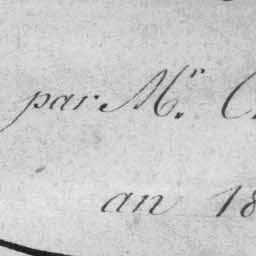 par Mr. C
an 18